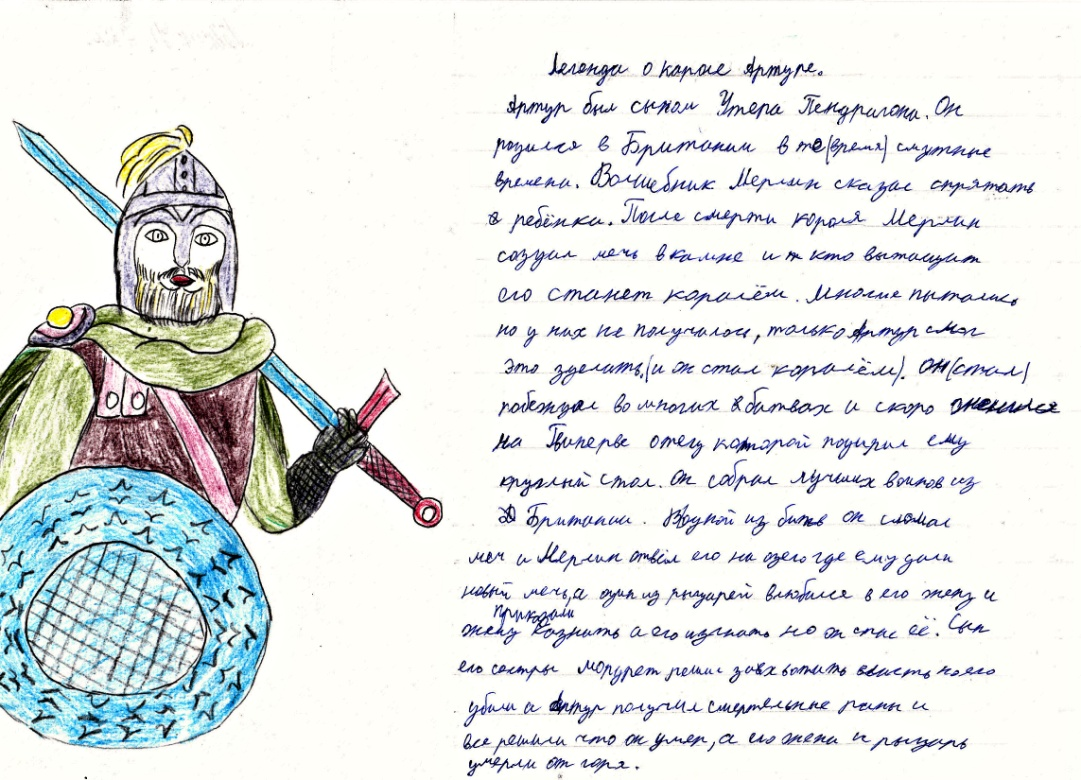 Легенда о короле Артуре.
Артур был сыном Утера Пендрагона. Он
родился в Британии в те(время) смутные
времена. Волшебник Мерлин сказал спрятать
ребёнка. После смерти короля Мерлин
создал мечь в камне и т кто вытащит
его станет королём. Многие пытались
но у них не получалось, только Артур смог
это зделать.(и он стал королём). Он(стал)
побеждал во многих битвах и скоро женился
на Гвиневре отец которой подарил ему
круглый стол. Он собрал лучших воинов из
Британии. В одной из битв он сломал
меч и Мерлин отвёл его на озего где ему дали
новый мечь, а один из рыцарей влюбился в его жену и
приказали
жену казнить а его изгнать но он спас её. Сын
его сестры мордрет решил захватить власть но его
убили а Артур получил смертельные раны и
все решили что он умер, а его жена и рыцарь
умерли от горя.